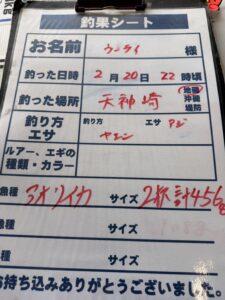 釣果シート
お名前 ウンライ 様
釣った日時 2月20日 22時頃
釣った場所 天神崎 地磯 沖磯 堤防
釣り方 エサ 釣り方 ヤエン エサ アジ
ルアー、エギの種類・カラー
魚種 アオリイカ サイズ 2杯 計456g
魚種 サイズ
サイズ
お持ち込みありがとうございました。